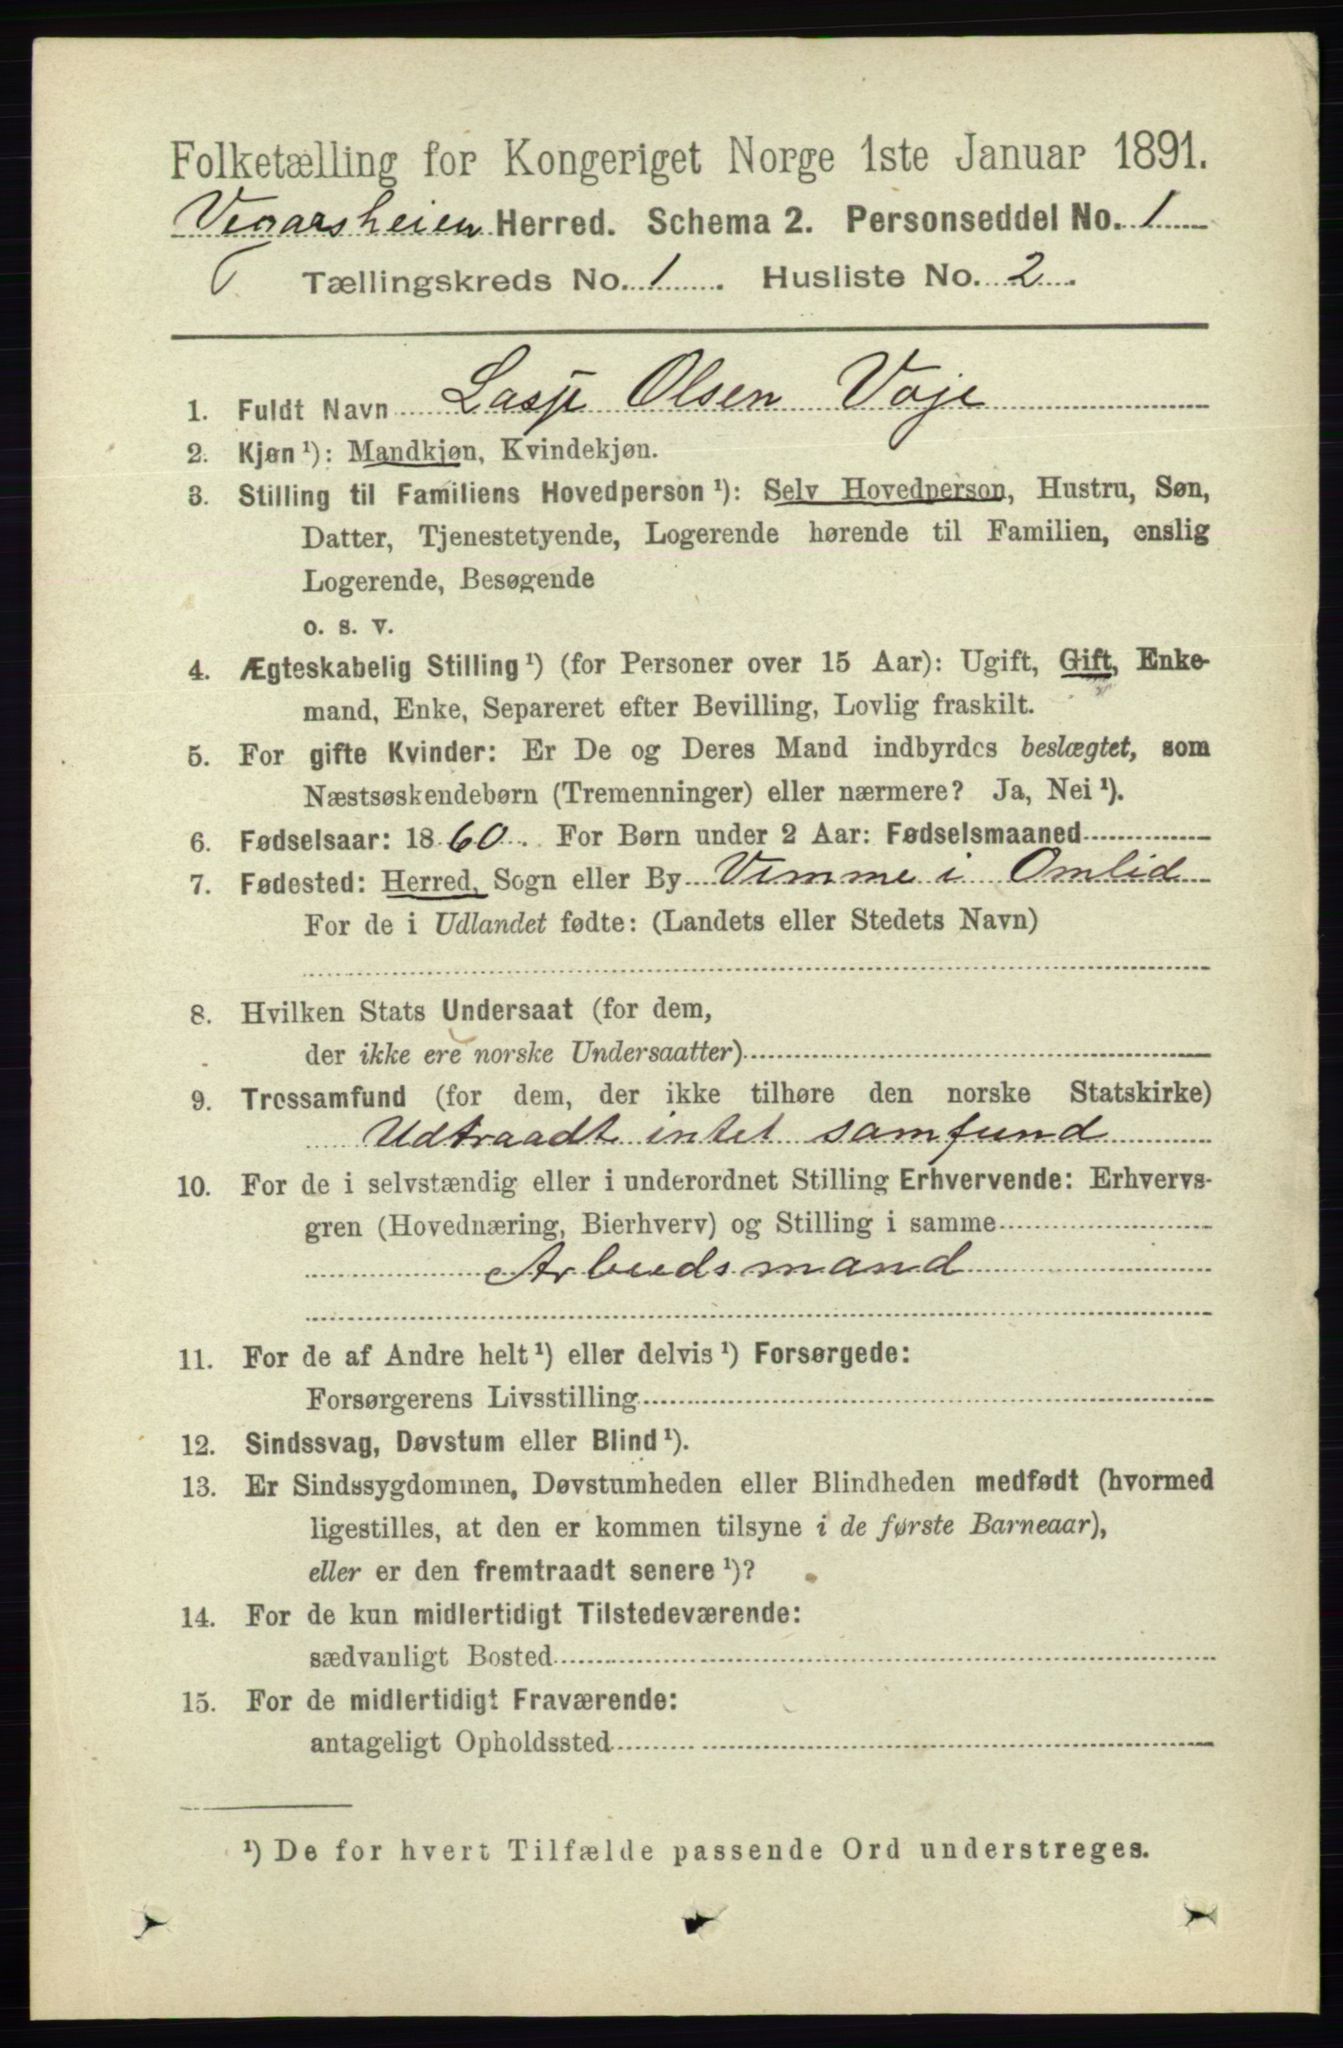 Folketælling for Kongeriget Norge 1ste Januar 1891.
Vegarsheien Herred. Schema 2. Personseddel No. 1
Tællingskreds No. 1. Husliste No. 2.
1. Fuldt Navn Olsen Voje
2. Kjøn ¹): Mandkjøn, Kvindekjøn.
3. Stilling til Familiens Hovedperson ¹): Selv Hovedperson, Hustru, Søn,
Datter, Tjenestetyende, Logerende hørende til Familien, enslig
Logerende, Besøgende
o. s. v.
4. Ægteskabelig Stilling ¹) (for Personer over 15 Aar): Ugift, Gift, Enke-
mand, Enke, Separeret efter Bevilling, Lovlig fraskilt.
5. For gifte Kvinder: Er De og Deres Mand indbyrdes beslægtet, som
Næstsøskendebørn (Tremenninger) eller nærmere? Ja, Nei ¹).
6. Fødselsaar: 1860. For Børn under 2 Aar: Fødselsmaaned
7. Fødested: Herred, Sogn eller By Vimme i Omlid
For de i Udlandet fødte: (Landets eller Stedets Navn)
8. Hvilken Stats Undersaat (for dem,
der ikke ere norske Undersaatter)
9. Trossamfund (for dem, der ikke tilhøre den norske Statskirke)
Udtraadt intet samfund
10. For de i selvstændig eller i underordnet Stilling Erhvervende: Erhvervs-
gren (Hovednæring, Bierhverv) og Stilling i samme
Arbeidsmand
11. For de af Andre helt ¹) eller delvis ¹) Forsørgede:
Forsørgerens Livsstilling
12. Sindssvag, Døvstum eller Blind ¹).
13. Er Sindssygdommen, Døvstumheden eller Blindheden medfødt (hvormed
ligestilles, at den er kommen tilsyne i de første Barneaar),
eller er den fremtraadt senere ¹)?
14. For de kun midlertidigt Tilstedeværende:
sædvanligt Bosted
15. For de midlertidigt Fraværende:
antageligt Opholdssted
¹) De for hvert Tilfælde passende Ord understreges.